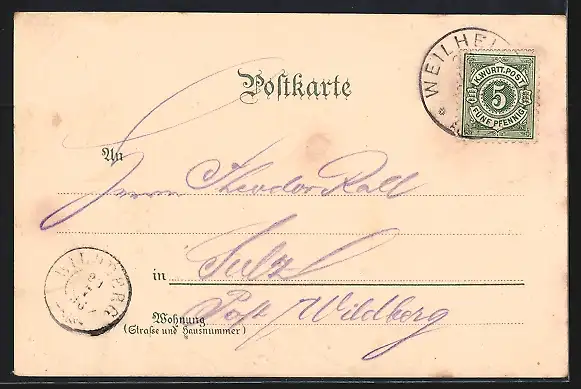 WEILHEI
K. WÜRTT. POST
5
FÜNF PFENNIG
Postkarte
An
Herrn Theodor Rall
in Sulz
Wohnung Post Wildberg
(Straße und Hausnummer)
WILDBERG